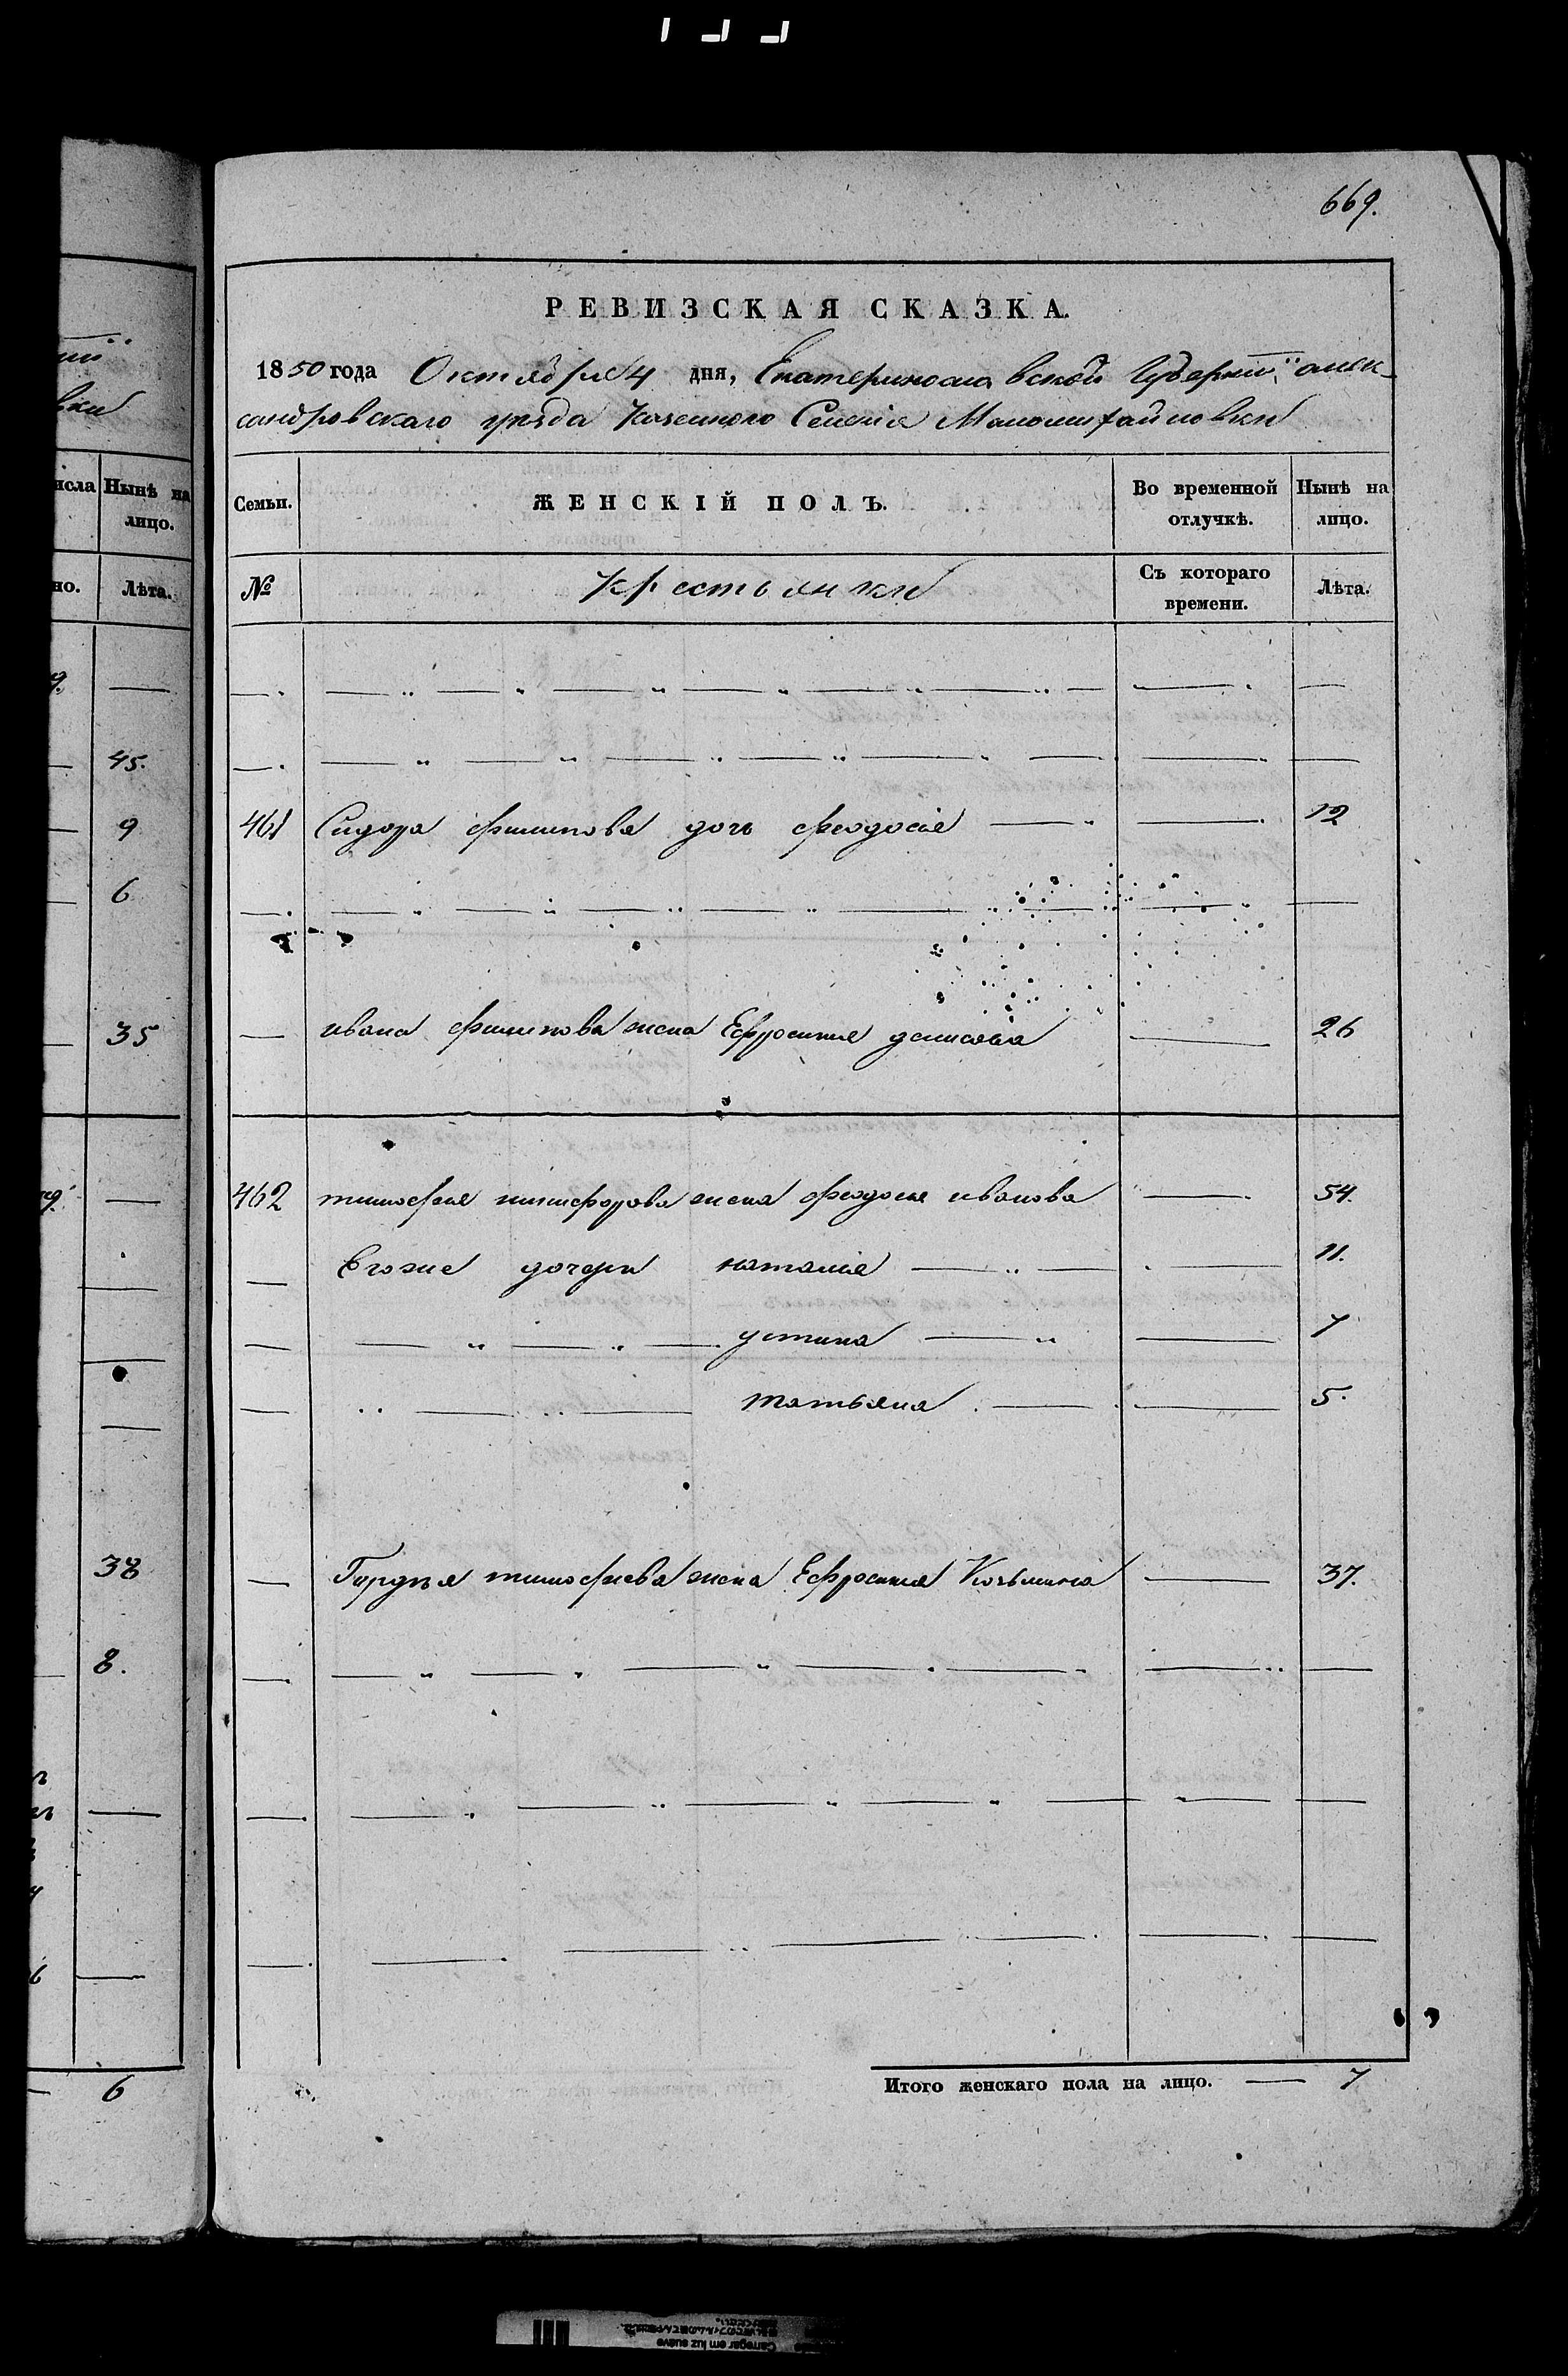 669.
РЕВИЗСКАЯ СКАЗКА.
1850 года Октября 4 дня, Екатеринославской Губернии, алек-
сандровскаго уезда Казенного Селенія Маломихайловки
нісла Нынѣ на лицо.
Семьи. ЖЕНСКІЙ ПОЛЪ. Во временной отлучкѣ. Нынѣ на лицо.
но. Лѣта.
№ Крестьянки Съ котораго времени. Лѣта.
45.
9
461 Сидора филипова дочь феодосія — 12
6
35
— ивана филипова жена Ефросиния денисова — 26
462 тимофея никифорова жена феодосия иванова — 54.
— Егоже дочери наталия — 11.
— устина — 7
— татьяна — 5.
38
— Гордея тимофеева жена Ефросиния Козьмина — 37.
8.
6
Итого женскаго пола на лицо. — 7
Carregar em luz suave